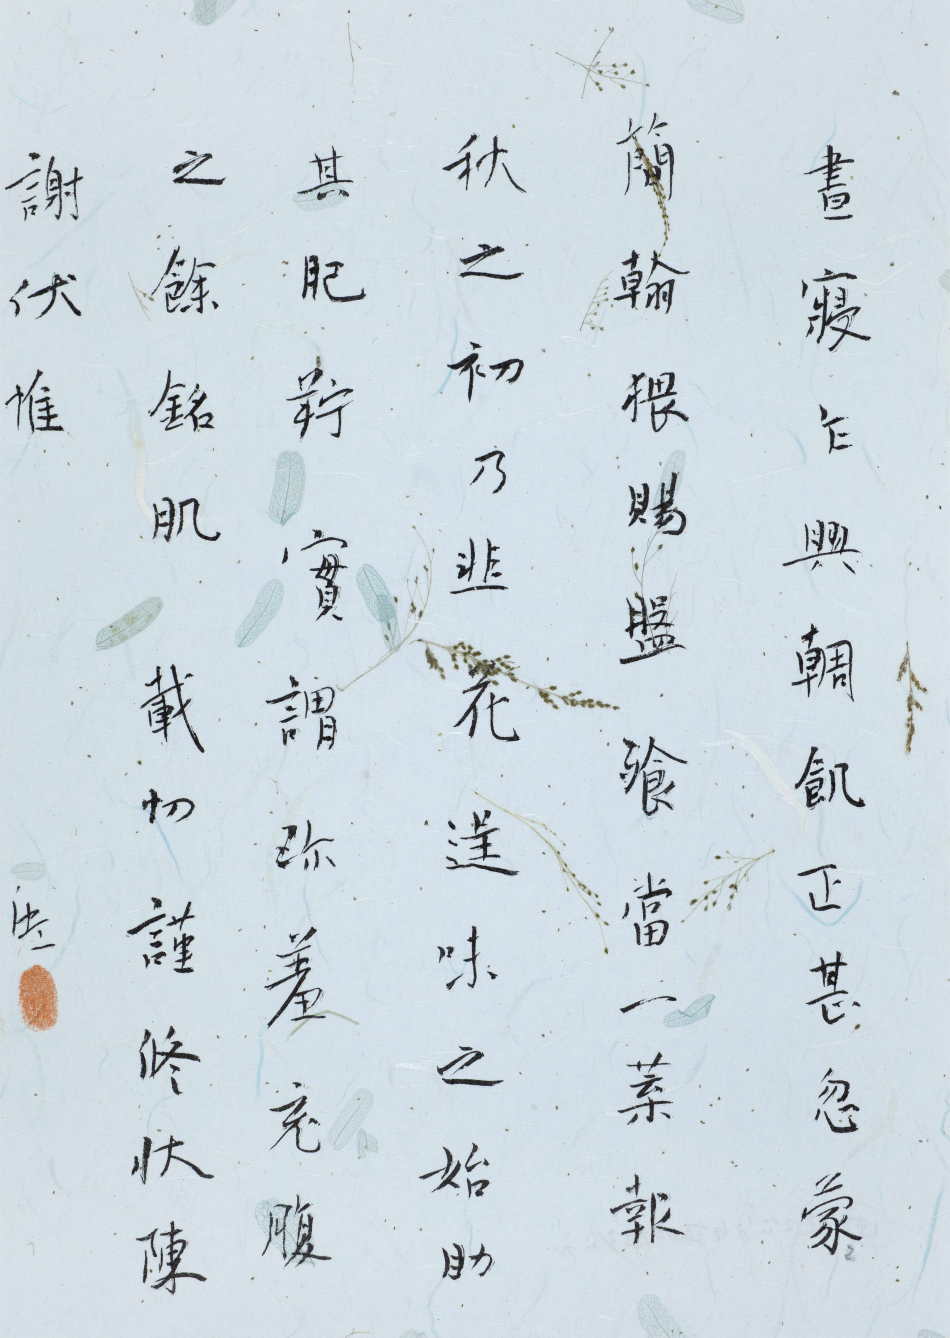 晝寢乍興輖飢正甚忽蒙
簡翰猥賜盤飧當一葉報
秋之初乃韭花逞味之始助
其肥羜實謂珍羞充腹
之餘銘肌載切謹修狀陳
謝伏惟